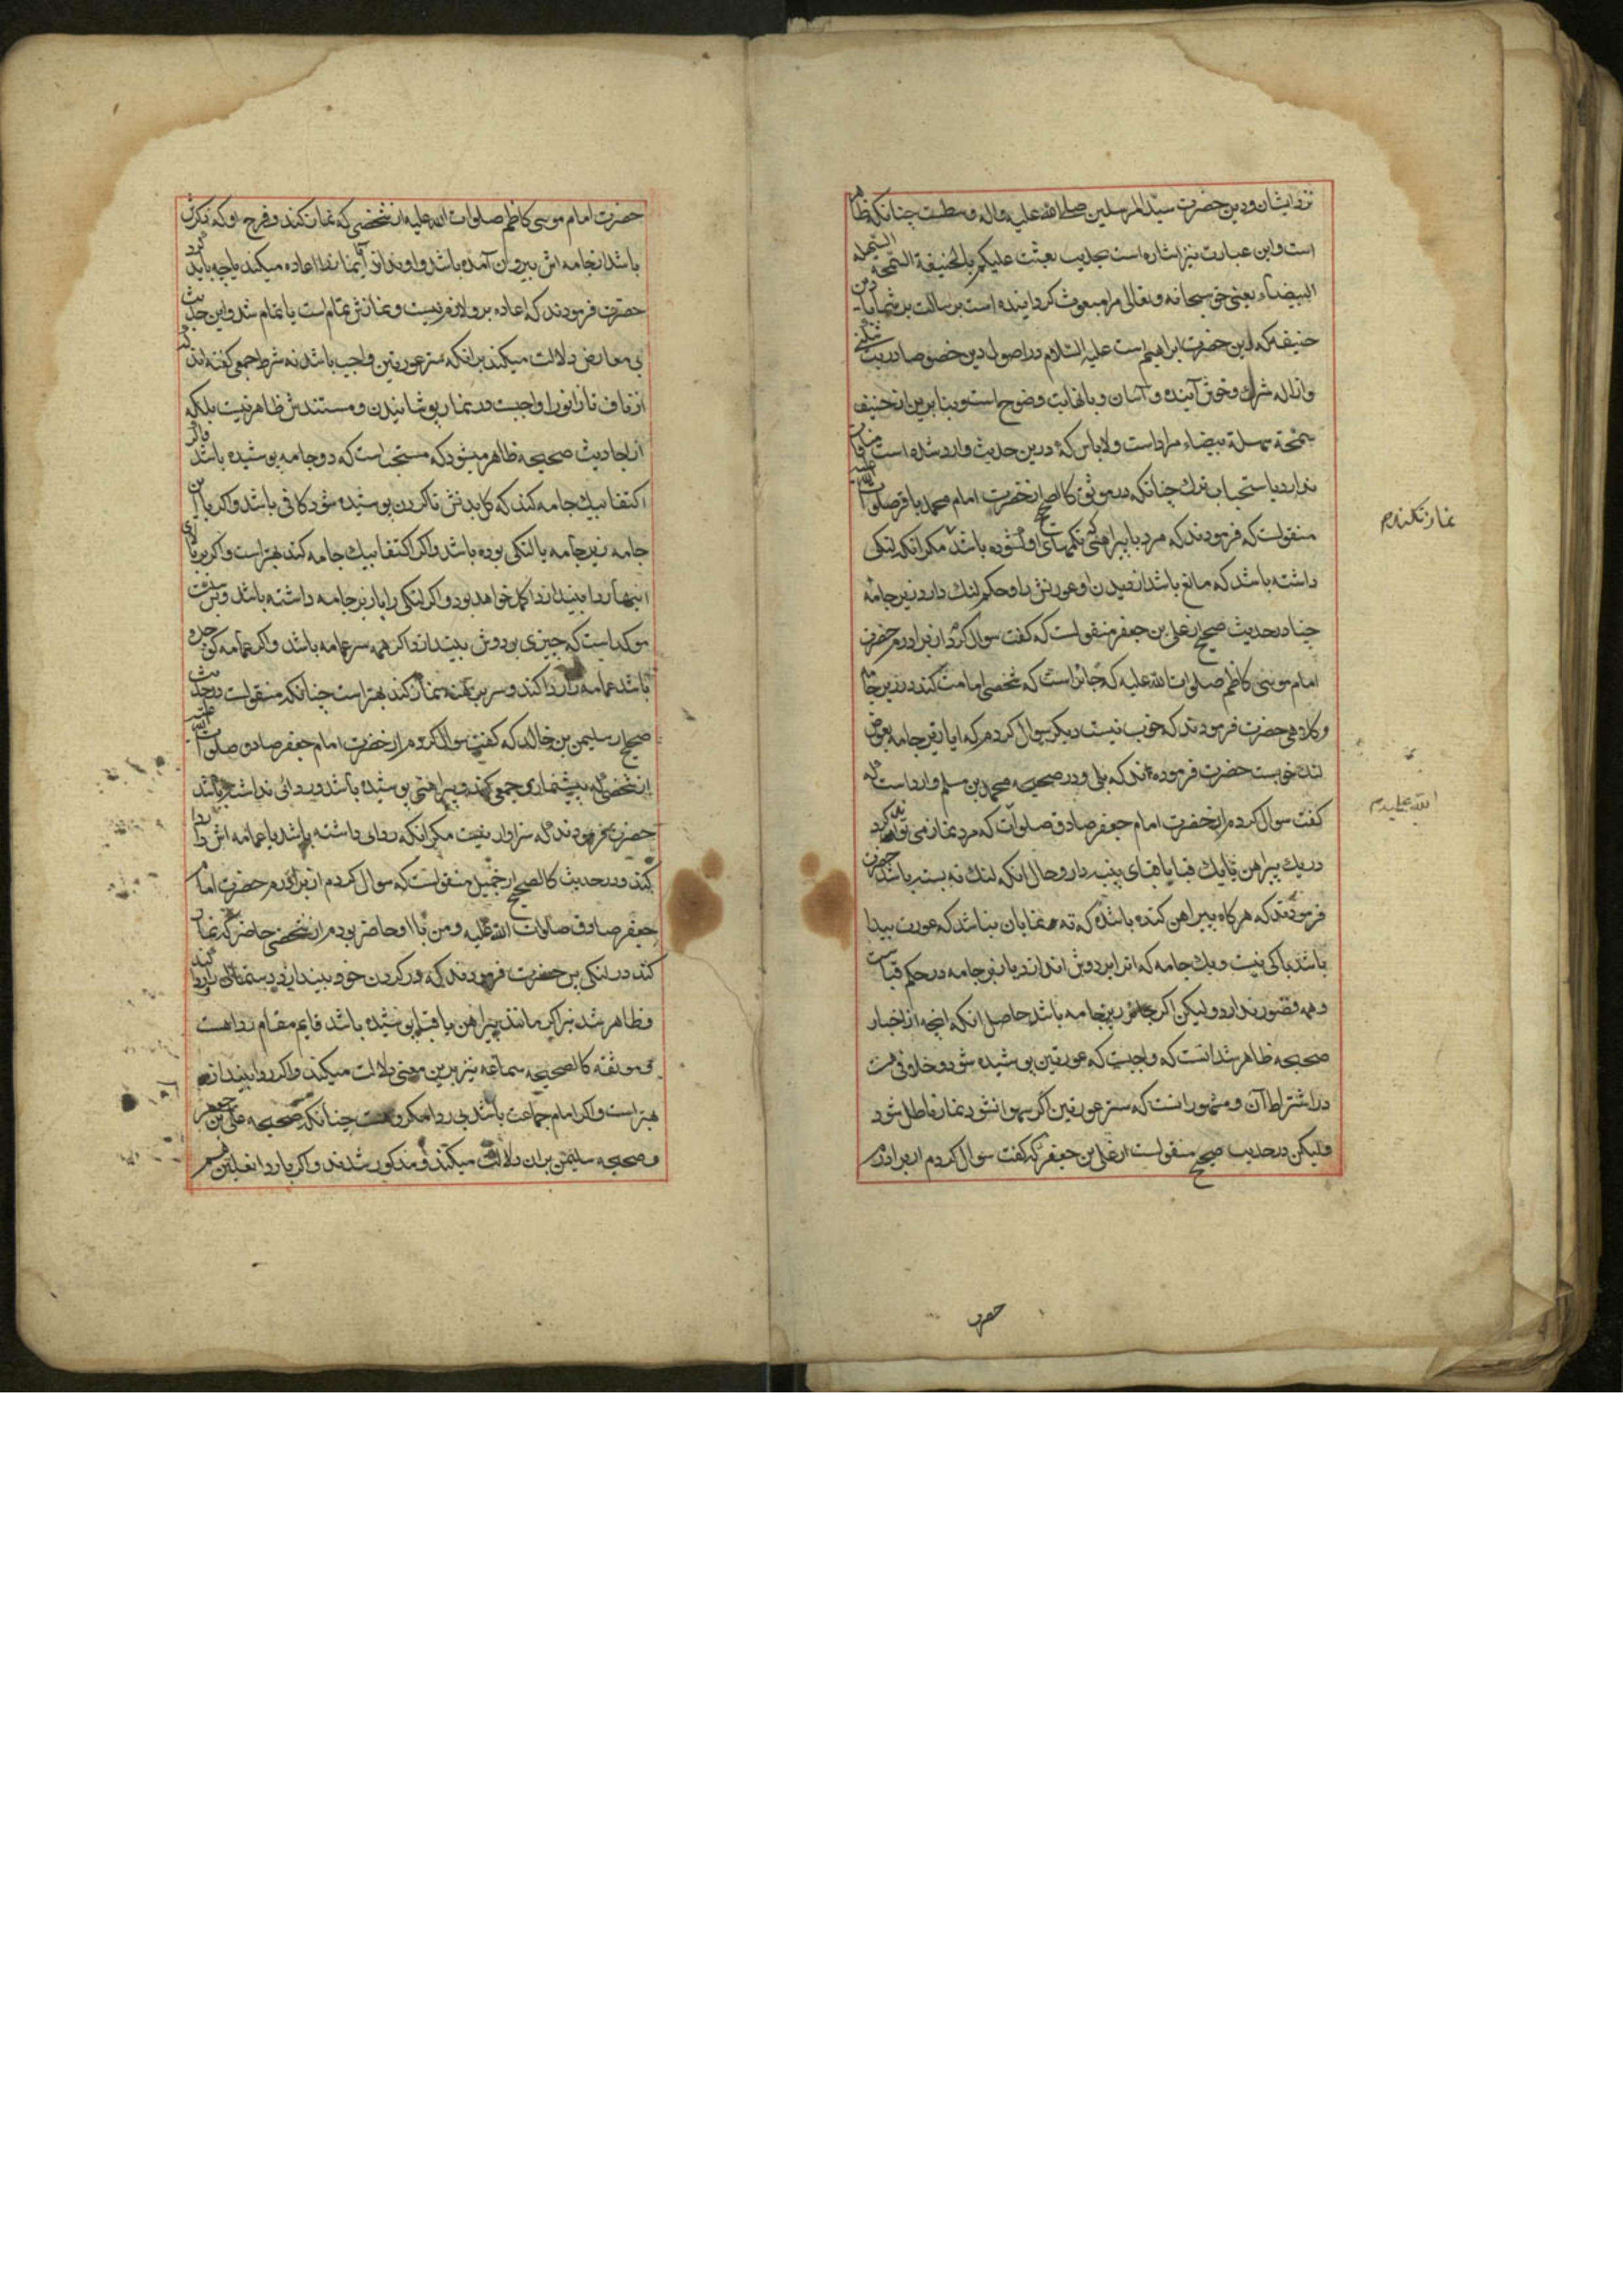 نزد ایشان و دین حضرت سید المرسلین صلی الله علیه و اله وسطست چنانکه ظاهر
است و این عبارت نیز اشاره است بحدیث بعثت علیکم بالحنیفة السمحة السهلة
البیضاء یعنی حق سبحانه و تعالی مرا مبعوث کردانیده است برسالت بر شما با دین
حنیفه که دین حضرت ابراهیم است علیه السلام در اصول دین خصوصا در بت شکنی
و ازاله شرک و خوش آینده و آسان و با نهایت وضوح است و بنابرین از حنیفه
سمحة سهلة بیضاء مراد است ولاباس که درین حدیث وارد شده است منافات
ندارد با استحباب ترک چنانکه در موثق کالصحیح از حضرت امام محمد باقر صلوات الله علیه
منقولست که فرمودند که مرد با پیراهنی تکمهای او کشوده باشد مکر انکه لنکی
داشته باشد که مانع باشد از دیدن او عورتش را و حکم لنک دارد زیر جامه
چنا در حدیث صحیح از علی بن جعفر منقولست که کفت سوال کردم از برادرم حضرت
امام موسی کاظم صلوات الله علیه که جائز است که شخصی امامت کند در زیر جامه
و کلاهی حضرت فرمودند که خوب نیست دیکر سوال کردم که ایا زیر جامه بعوض
لنک خوبست حضرت فرموده اند که بلی و در صحیحه محمد بن مسلم وارد است که
کفت سوال کردم از حضرت امام جعفر صادق صلوات که مرد نماز می تواند کرد
در یک پیراهن یا یک قبا یا قبای پنبه دار و حال انکه لنک نه بسته باشد حضرت
فرمودند که هرکاه پیراهن کنده باشد که ته نمایان نباشد که عورت پیدا
باشد باکی نیست و یک جامه که انرا بر دوش اندازد یا زیر جامه در حکم قباست
و همه قصور ندارد و لیکن اکر زیر جامه باشد حاصل انکه انچه از اخبار
صحیحه ظاهر شد انست که واجبست که عورتین پوشیده شود و خلافی هست
در اشتراط آن و مشهور انست که ستر عورتین اکر سهوا نشود نماز باطل شود
ولیکن در حدیث صحیح منقولست از علی بن جعفر که کفت سوال کردم از برادرم
نماز نکندم
الله علیه م
حضرت
حضرت امام موسی کاظم صلوات الله علیه از شخصی که نماز کند و فرج او که ذکرش
باشد از جامه اش بیرون آمده باشد و او نداند آیا نماز را اعاده میکند یا چه باید کرد
حضرت فرمودند که اعاده برو لازم نیست و نمازش تمام است یا تمام شد و این حدیث
بی معارض دلالت میکند برانکه ستر عورتین واجب باشد نه شرط جمعی کفته اند که
از ناف تا زانو را واجبست در نماز پوشانیدن و مستندش ظاهر نیست بلکه
از احادیث صحیحه ظاهر میشود که مستحب است که دو جامه پوشیده باشد و اکر
اکتفا بیک جامه کند که کل بدنش تا کردن پوشیده شود کافی باشد و اکر با این
جامه زیر جامه یا لنکی بوده باشد و اکر اکتفا بیک جامه کند بهتر است و اکر بر بالای
اینها ردا بیندازد اکمل خواهد بود و اکر لنکی را یا زیر جامه داشته باشد و بس سنت
موکد است که چیزی بر دوش بیندازد اکر همه سر عمامه باشد و اکر عمامه کوچک
باشد عمامه را ردا کند و سر برهنه نماز کند بهتر است چنانکه منقولست در حدیث
صحیح از سلیمن بن خالد که کفت سوال کردم از حضرت امام جعفر صادق صلوات الله علیه
از شخصی که پیشنمازی جمعی کند و پیراهنی پوشیده باشد و ردائی نداشته باشد
حضرت فرمودند که سزاوار نیست مکر انکه ردای داشته باشد یا عمامه اش را ردا
کند و در حدیث کالصحیح از جمیل منقولست که سوال کردم از حضرت امام
جعفر صادق صلوات الله علیه و من با او حاضر بودم از شخصی حاضر که نماز
کند در لنکی پس حضرت فرمودند که در کردن خود بیندازد دستمالی را ردا کند
و ظاهر شد نیز اکر مانند پیراهن یا قبا پوشیده باشد قایم مقام ردا هست
و موثقه کالصحیحه سماعه نیز برین معنی دلالت میکند و اکر ردا بیندازد
بهتر است و اکر امام جماعت باشد بی ردا مکروهست چنانکه صحیحه علی بن جعفر
و صحیحه سلیمن بران دلالت میکند و مذکور شدند و اکر با ردا نعلین هم